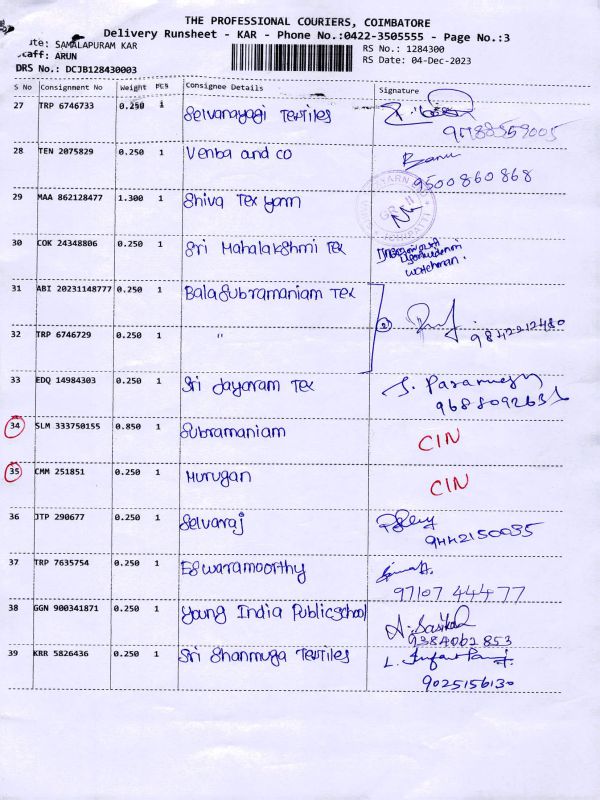 THE PROFESSIONAL COURIERS, COIMBATORE
Delivery Runsheet - KAR - Phone No.:0422-3505555 - Page No.:3
ute: SAMALAPURAM KAR
RS No.: 1284300
taff: ARUN
RS Date: 04-Dec-2023
DRS No.: DCJB128430003
S No Consignment No Weight PCS Consignee Details Signature
27 TRP 6746733 0.250 1 Selvanayagi Textiles
28 TEN 2075829 0.250 1 Venba and co Banu
9500860868
29 MAA 862128477 1.300 1 Shiva Tex yarn
30 COK 24348806 0.250 1 Sri Mahalakshmi Tex
watchman.
31 ABI 20231148777 0.250 1 Bala Subramaniam Tex
2
9842212480
32 TRP 6746729 0.250 1 "
33 EDQ 14984303 0.250 1 Sri Jayaram Tex
34 SLM 333750155 0.850 1 Subramaniam CIN
35 CMM 251851 0.250 1 Murugan CIN
36 JTP 290677 0.250 1 Selvaraj
9442150035
37 TRP 7635754 0.250 1 Eswaramoorthy
97107 44477
38 GGN 900341871 0.250 1 Young India Public school
9384062853
39 KRR 5826436 0.250 1 Sri Shanmuga Textiles
9025156130